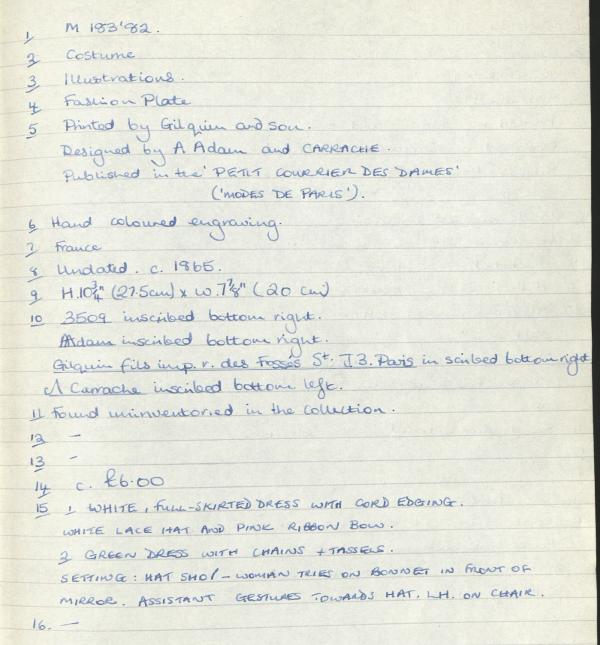 1 M 183'82.
2 Costume
3 Illustrations.
4 Fashion Plate
5 Printed by Gilquin and son.
Designed by A Adam and CARRACHE.
Published in the 'PETIT COURRIER DES DAMES'
('MODES DE PARIS').
6 Hand coloured engraving.
7 France
8 Undated. c. 1865.
9 H.10¾" (27.5cm) x W.7⅞" (20 cm)
10 3509 inscribed bottom right.
AAdam inscribed bottom right.
Gilquin fils imp. r. des Fossés St. J 3. Paris in scribed bottom right
A Carrache inscribed bottom left.
11 Found uninventoried in the collection.
12 -
13 -
14 c. £6.00
15 1 WHITE, FULL-SKIRTED DRESS WITH CORD EDGING.
WHITE LACE HAT AND PINK RIBBON BOW.
2 GREEN DRESS WITH CHAINS + TASSELS.
SETTING: HAT SHOP - WOMAN TRIES ON BONNET IN FRONT OF
MIRROR. ASSISTANT GESTURES TOWARDS HAT, LH. ON CHAIR.
16. -